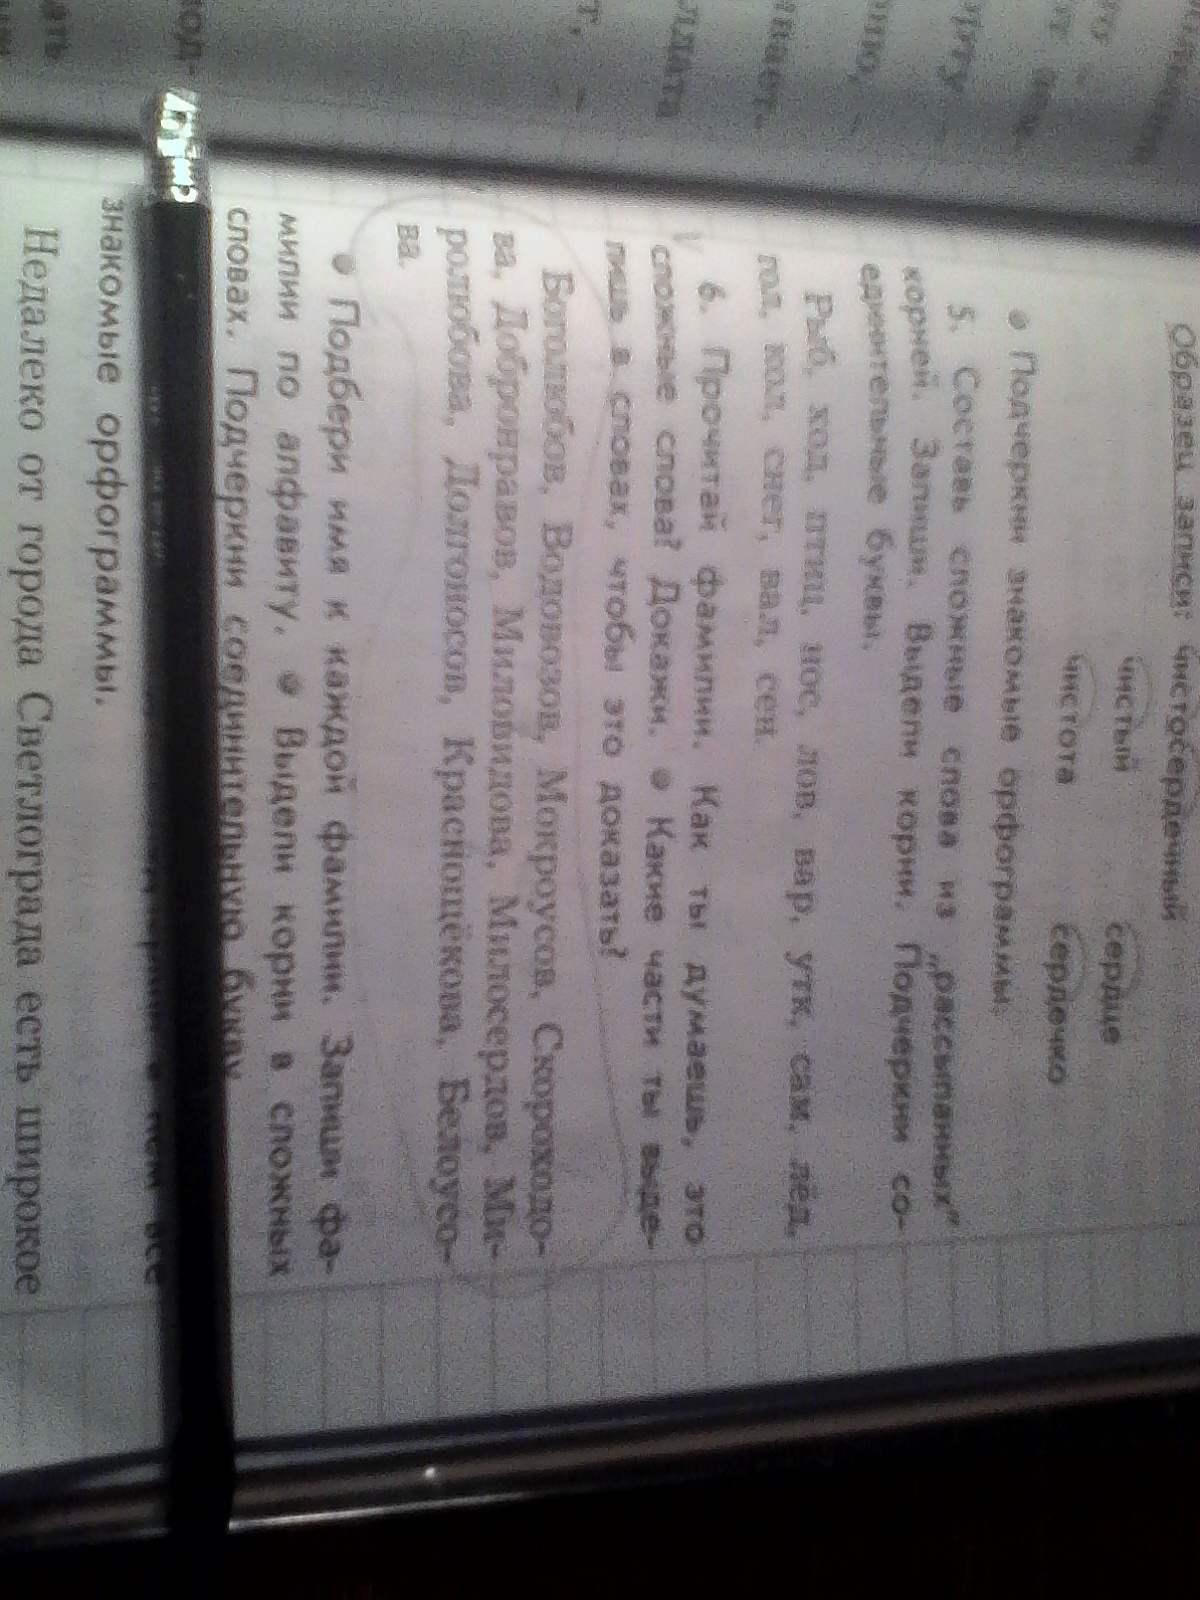 Образец записи: чистосердечный
чистый сердце
чистота сердечко
● Подчеркни знакомые орфограммы.
5. Составь сложные слова из „рассыпанных”
корней. Запиши. Выдели корни. Подчеркни со-
единительные буквы.
Рыб, ход, птиц, нос, лов, вар, утк, сам, лёд,
гол, кол, снег, вал, сен.
6. Прочитай фамилии. Как ты думаешь, это
сложные слова? Докажи. ● Какие части ты выде-
лишь в словах, чтобы это доказать?
Боголюбов, Водовозов, Мокроусов, Скороходо-
ва, Добронравов, Миловидова, Милосердов, Ми-
ролюбова, Долгоносов, Краснощёкова, Белоусо-
ва.
● Подбери имя к каждой фамилии. Запиши фа-
милии по алфавиту. ● Выдели корни в сложных
словах. Подчеркни соединительную букву.
все
знакомые орфограммы.
Недалеко от города Светлограда есть широкое